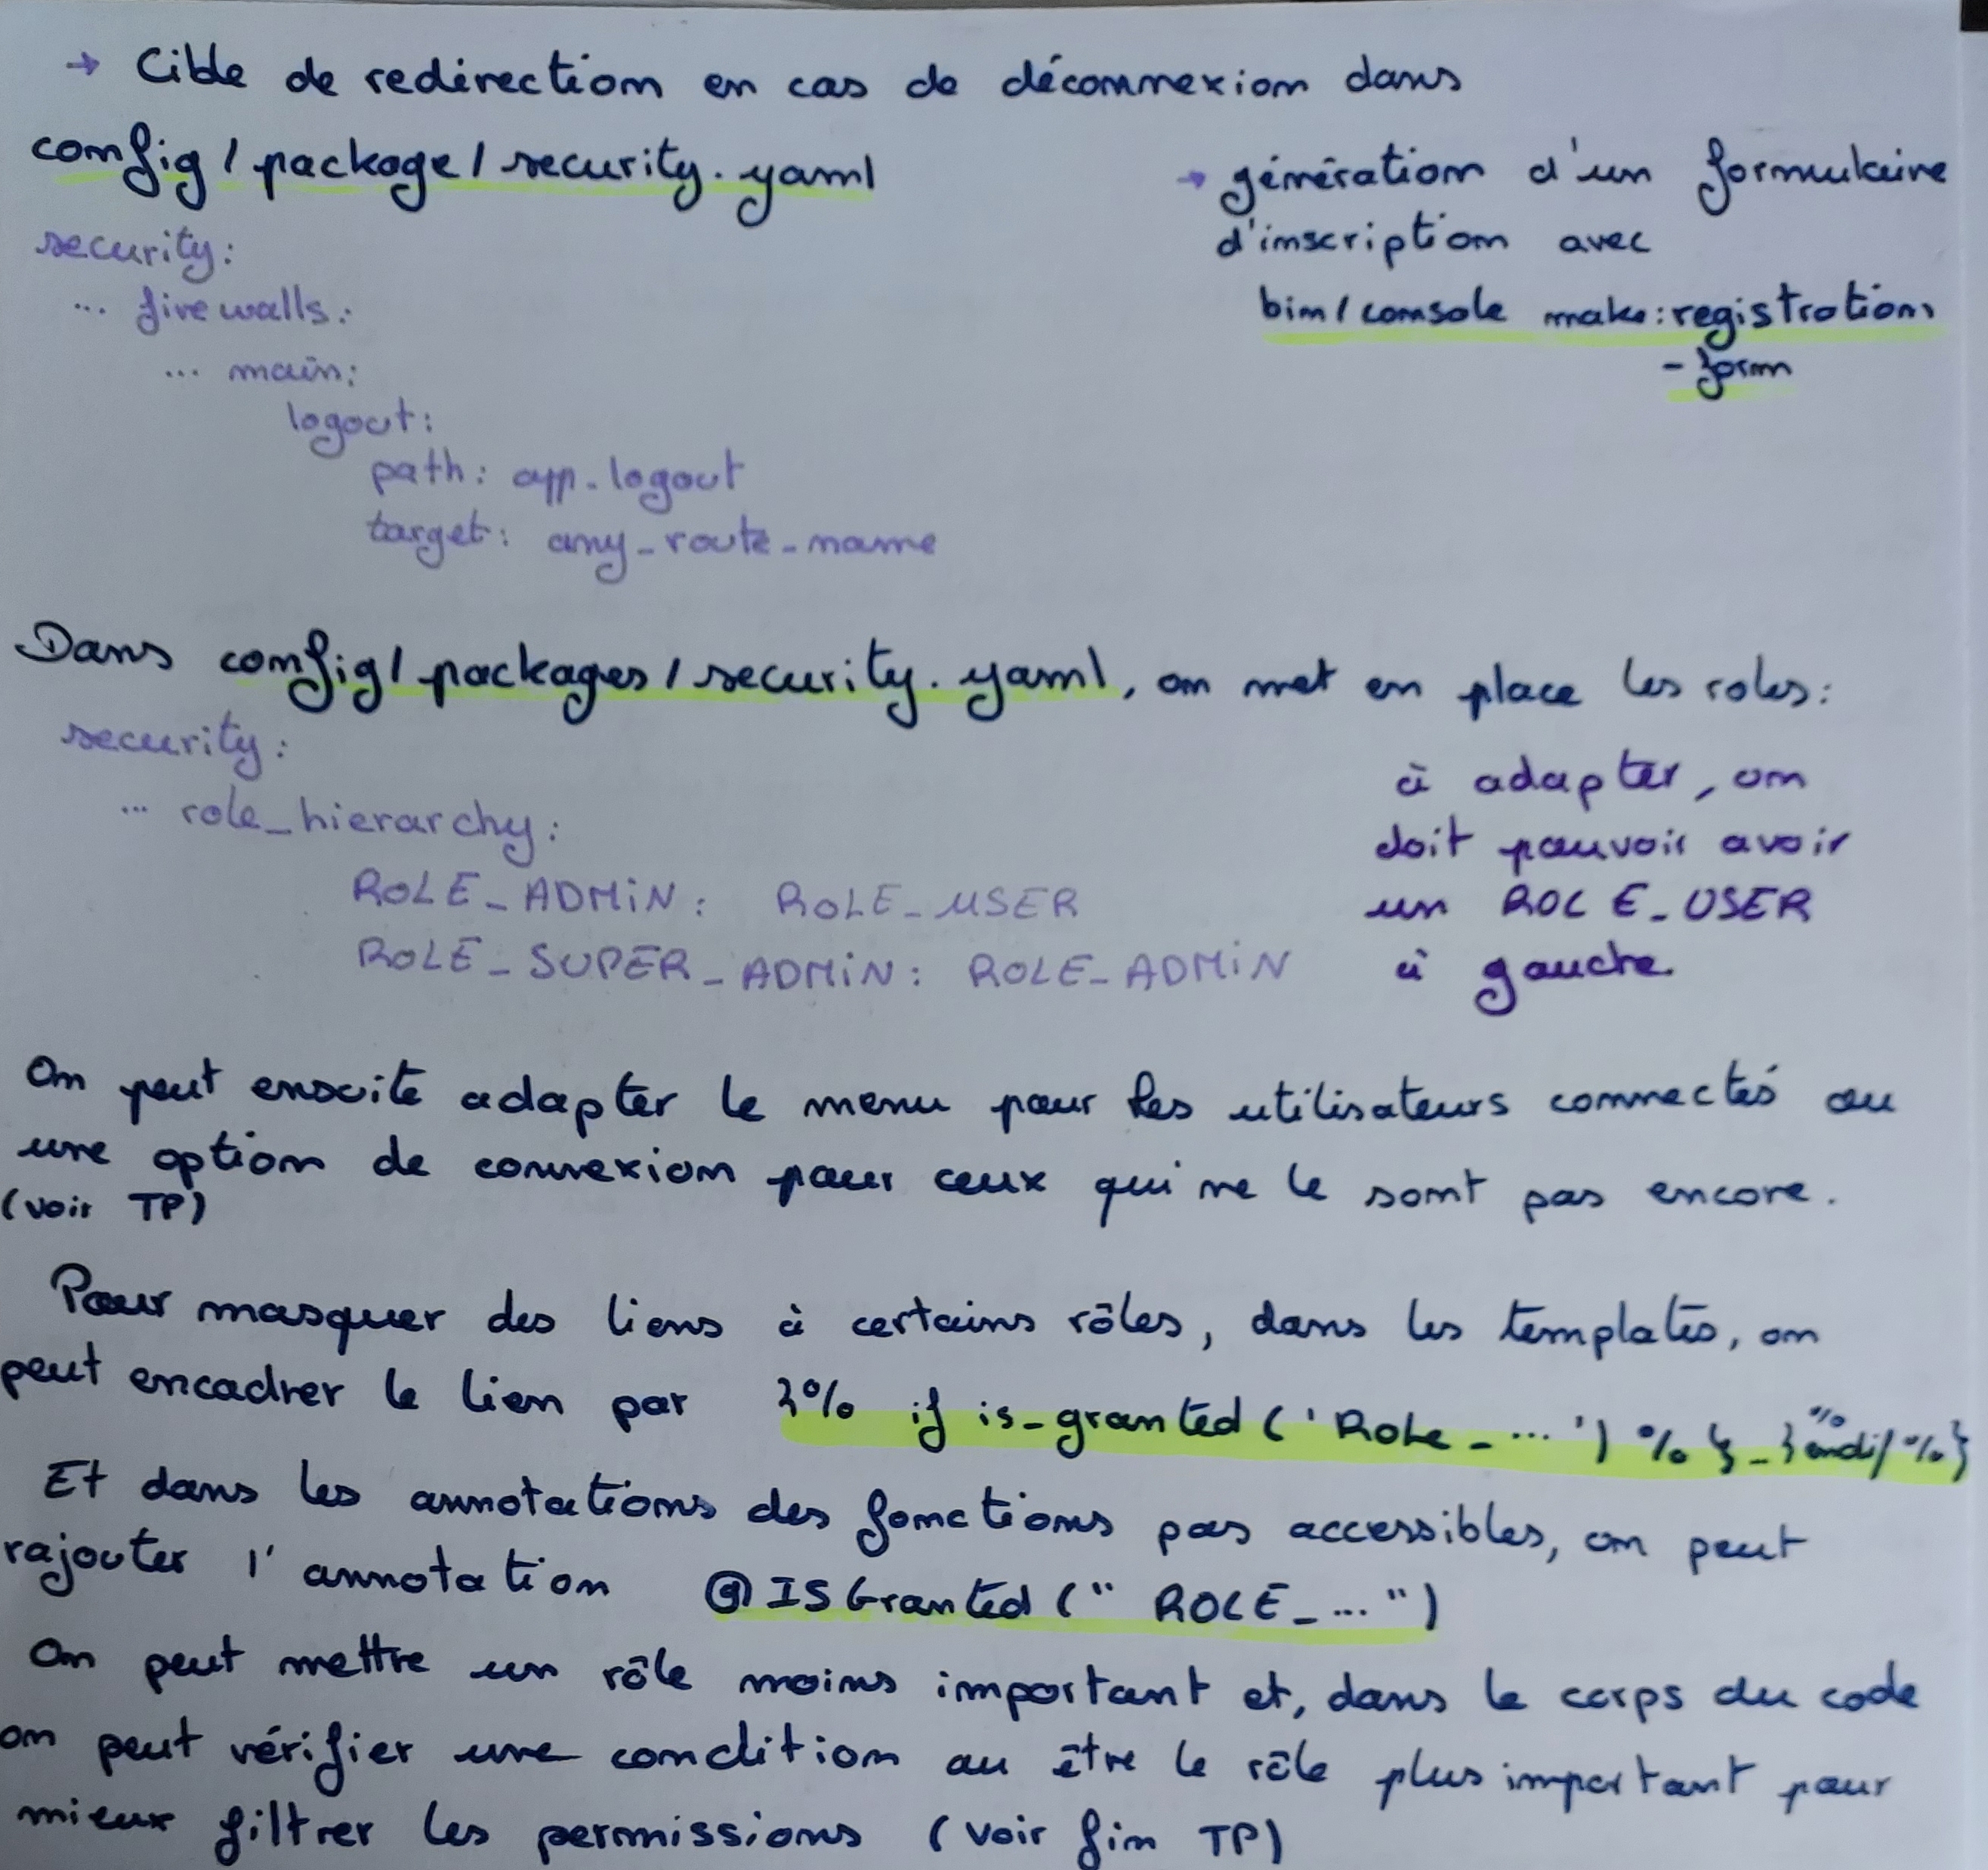 → Cible de redirection en cas de déconnexion dans
config/package/security.yaml
security:
... firewalls:
... main:
logout:
path: app_logout
target: any_route_name
→ génération d'un formulaire
d'inscription avec
bin/console make:registration
-form
Dans config/packages/security.yaml, on met en place les roles:
security:
... role_hierarchy:
ROLE_ADMIN: ROLE_USER
ROLE_SUPER_ADMIN: ROLE_ADMIN
à adapter, on
doit pouvoir avoir
un ROLE_USER
à gauche
On peut ensuite adapter le menu pour les utilisateurs connectés ou
une option de connexion pour ceux qui ne le sont pas encore.
(voir TP)
Pour masquer des liens à certains rôles, dans les templates, on
peut encadrer le lien par {% if is_granted('ROLE_...') %}_{% endif %}
Et dans les annotations des fonctions pas accessibles, on peut
rajouter l'annotation @ISGranted("ROLE_...")
On peut mettre un rôle moins important et, dans le corps du code
on peut vérifier une condition ou être le rôle plus important pour
mieux filtrer les permissions (voir fin TP)